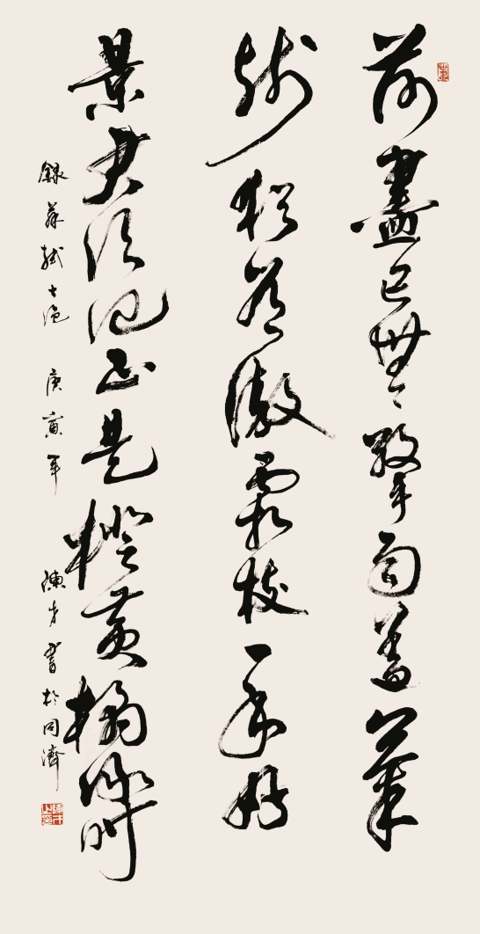 荷盡已無擎雨蓋菊
殘猶有傲霜枝一年好
景君須記正是橙黃橘綠時
錄蘇軾七絕 庚寅年 陳 書於同濟